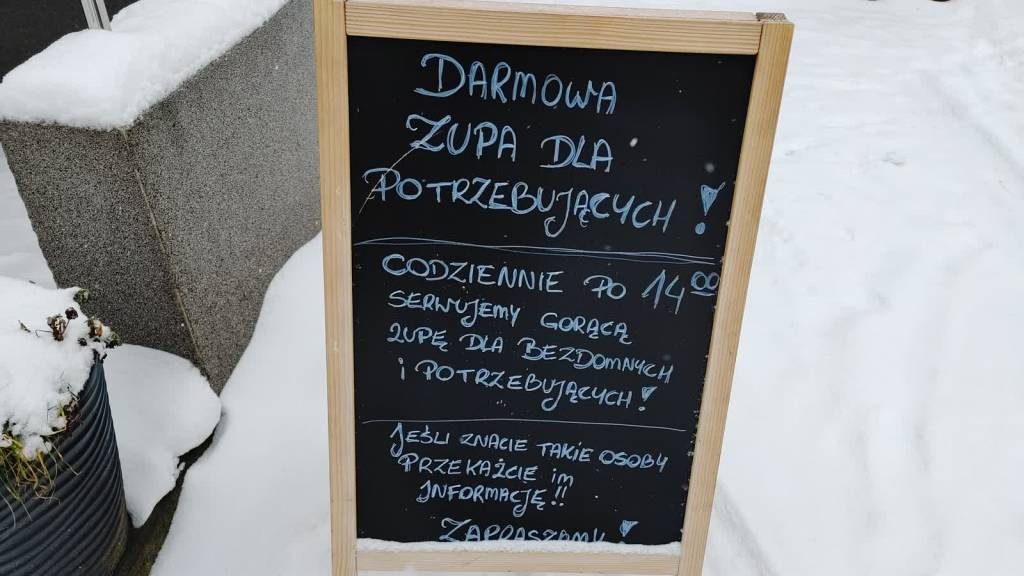 DARMOWA
ZUPA DLA
POTRZEBUJĄCYCH!
CODZIENNIE PO 14⁰⁰
SERWUJEMY GORĄCĄ
ZUPĘ DLA BEZDOMNYCH
i POTRZEBUJĄCYCH!
JEŚLI ZNACIE TAKIE OSOBY
PRZEKAŻCIE im
INFORMACJĘ!!
ZAPRASZAMY!